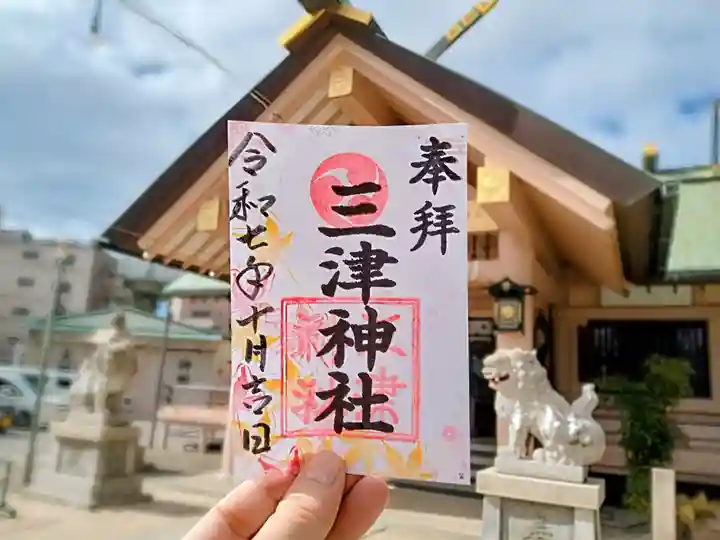 奉拝
三津神社
三津神社
令和七年十月吉日